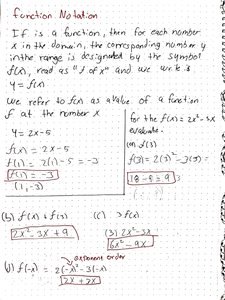 Function Notation
If is a function, then for each number
x in the domain, the corresponding number y
in the range is designated by the symbol
f(x), read as "f of x" and we write
y = f(x)
we refer to f(x) as a value of a function
f at the number x
y = 2x-5
f(x) = 2x-5
f(1) = 2(1)-5 = -3
f(1) = -3
(1,-3)
for the f(x) = 2x²-3x
evaluate.
f(3) = 2(3)²-3(3) =
18-9 = 9
(b) f(x) + f(3)
2x² - 3x + 9
(c) 3f(x)
(3) 2x² - 3x
6x² - 9x
(d) f(-x) =
exponent order
2(-x)² - 3(-x)